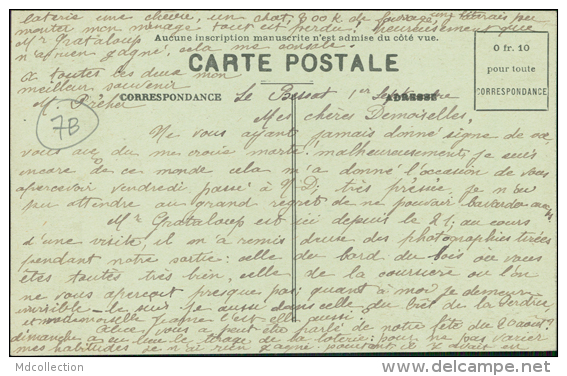 loterie une chèvre, un chat, 800 k de fourrage, une literais pour
monter mon ménage tout est perdu, heureusement que
Mr Grataloup
n'a rien gagné, cela me console.
Aucune inscription manuscrite n'est admise du côté vue.
à toutes les deux mon
meilleur souvenir
M.
CARTE POSTALE
0 fr. 10
pour toute
CORRESPONDANCE
CORRESPONDANCE
Le Bessat 1er Septembre
ADRESSE
7B
Mes chères Demoiselles,
Ne vous ayant jamais donné signe de vie,
vous avez du me croire morte! malheureusement je suis
encore de ce monde cela m'a donné l'occasion de vous
apercevoir vendredi passé à N.D; très pressée, je n'ai
pu attendre au grand regret de ne pouvoir bavarder
Mr Grataloup est ici depuis le 21; au cours
d'une visite, il m'a remis deux des photographies tirées
pendant notre sortie: celle du bord du bois où vous
êtes toutes très bien, celle de la où l'on
ne vous aperçoit presque pas; quant à moi je demeure
invisible - le suis je aussi dans celle du Crêt de la Perdrix
et mademoiselle
Alice vous a peut être parlé de notre fête du 20 août?
dimanche a eu lieu le tirage de la loterie: pour ne pas varier
mes habitudes je n'ai rien gagné pourtant il y avait en
Mdcollection
delcampe.net